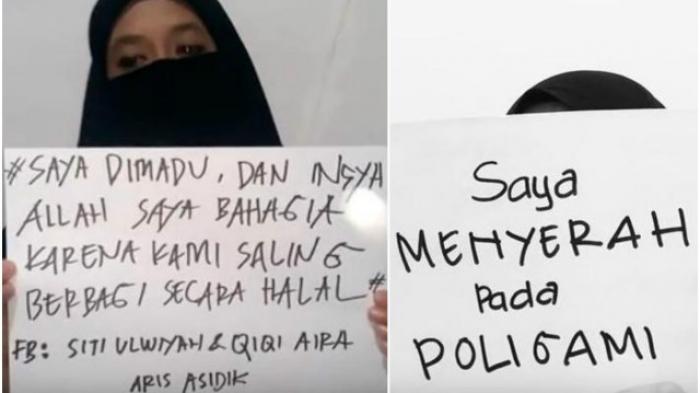 #SAYA DIMADU, DAN INSYA
ALLAH SAYA BAHAGIA
KARENA KAMI SALING
BERBAGI SECARA HALAL#
FB: SITI ULWIYAH & QIQI AIRA
ARIS ASIDIK
Saya
MENYERAH
Pada
POLIGAMI